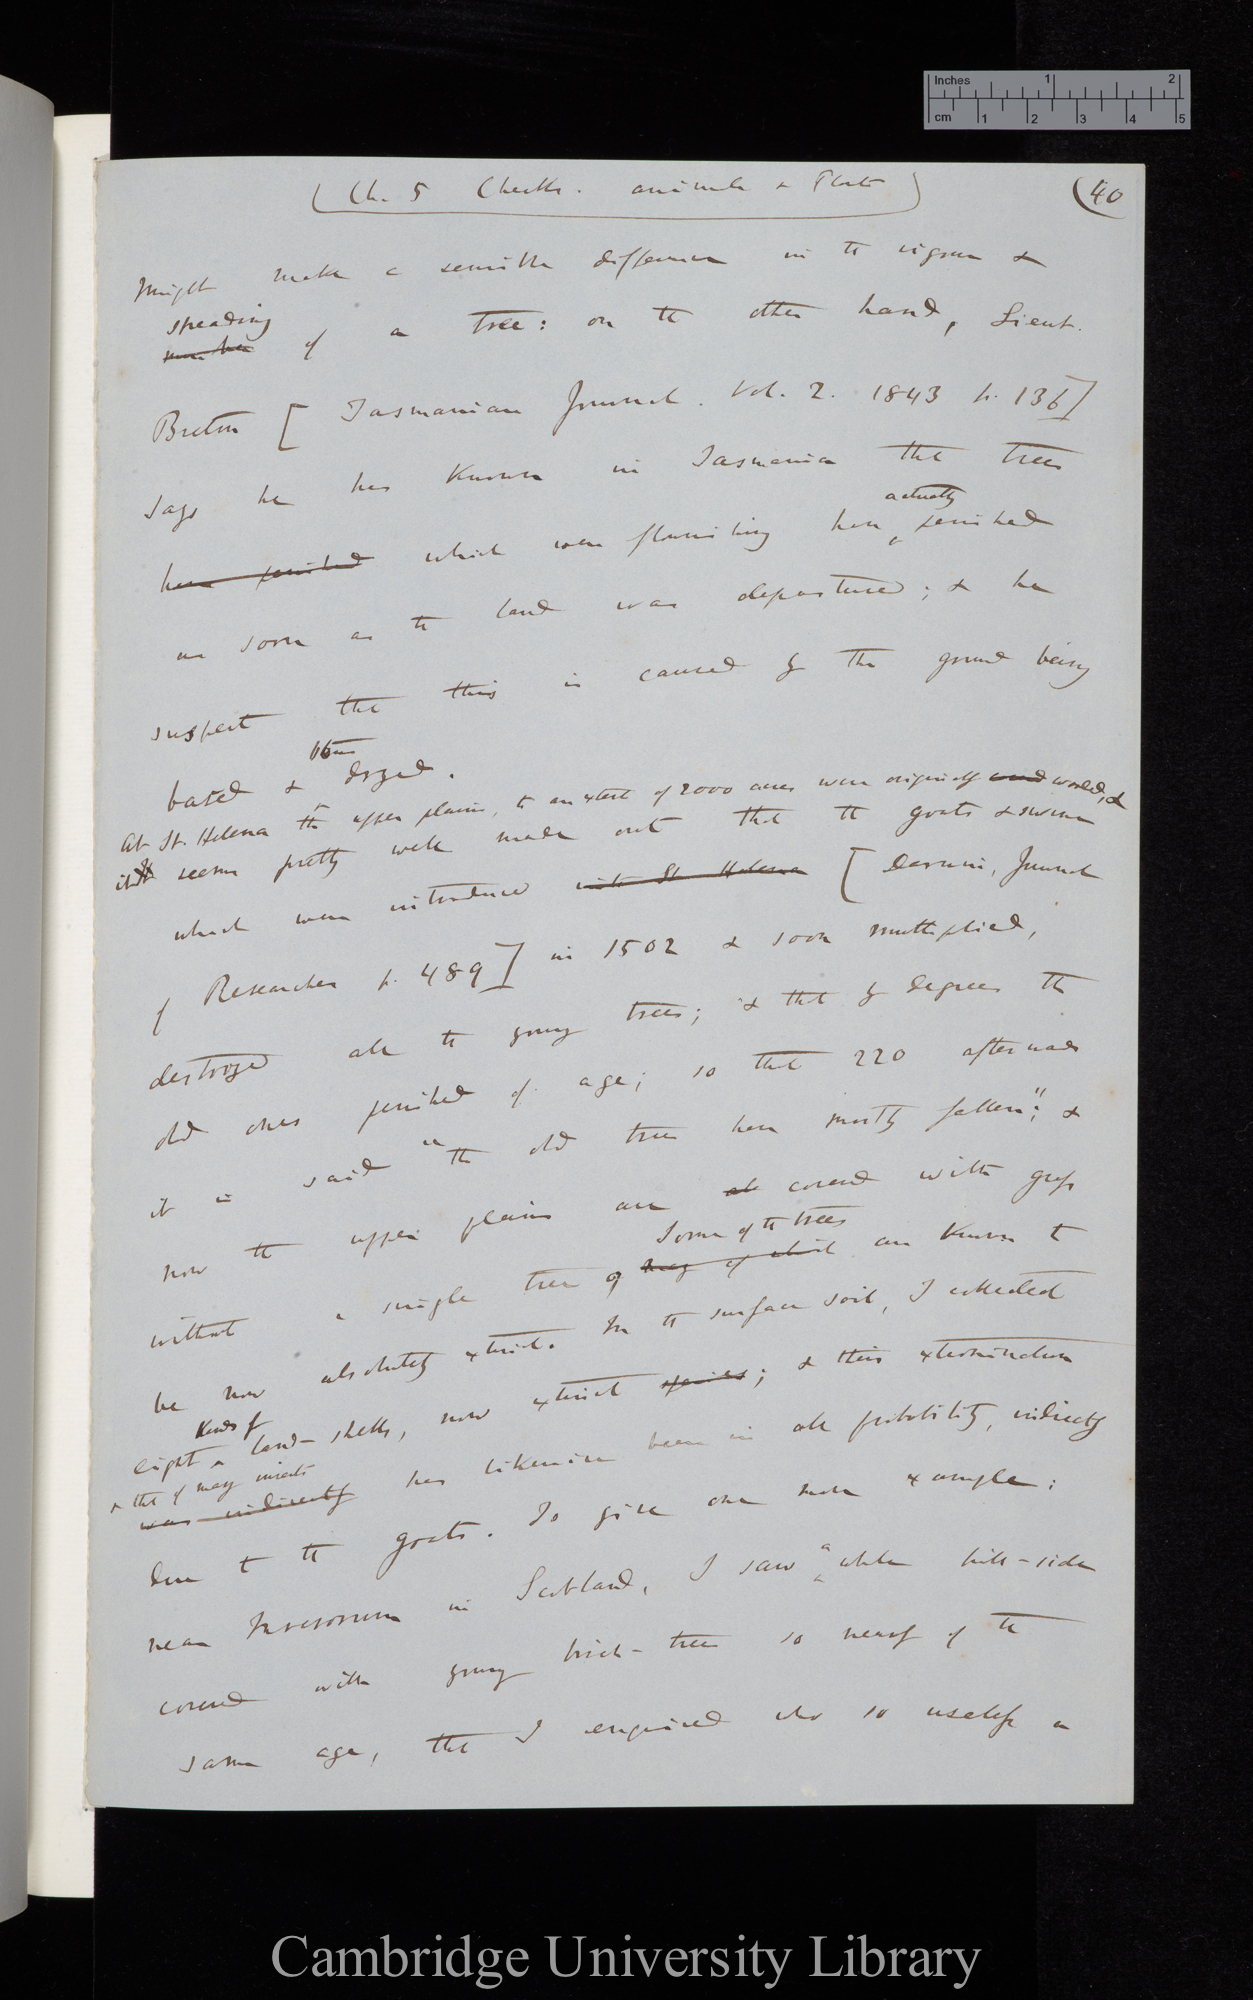 Inches 1 2
cm 1 2 3 4 5
(Ch. 5 Checks. animals & Plants)
(40
might make a sensible difference in the vigour &
spreading
number of a tree: on the other hand, Lieut.
Breton [Tasmanian Journal. Vol. 2. 1843 p. 136]
says he has known in Tasmania that trees
actually
have perished which were flourishing have ‸ perished
as soon as the land was depastured; & he
suspects that this is caused by the ground being
baked &
dryed.
At St. Helena the upper plains, to an extent of 2000 acres were originally wood wooded, &
it seems pretty well made out that the goats & swine
which were introduced into St Helena [Darwin, Journal
of Researches p. 489] in 1502 & soon multiplied,
destroyed all the young trees; & that by degrees the
old ones perished of age; so that 220 afterwards
it is said "the old trees have mostly fallen"; &
now the upper plains are all covered with grass
Some of the trees
without a single tree of many of which are known to
be now absolutely extinct. In the surface soil, I collected
kinds of
eight ‸ land-shells, now extinct species; & their extermination
& that of many insects
was indirectly has likewise been in all probability, indirectly
due to the goats. To give one more example:
a
near Inverorum in Scotland, I saw ‸ whole hill-side
covered with young birch-trees so nearly of the
same age, that I enquired who so useless a
Cambridge University Library